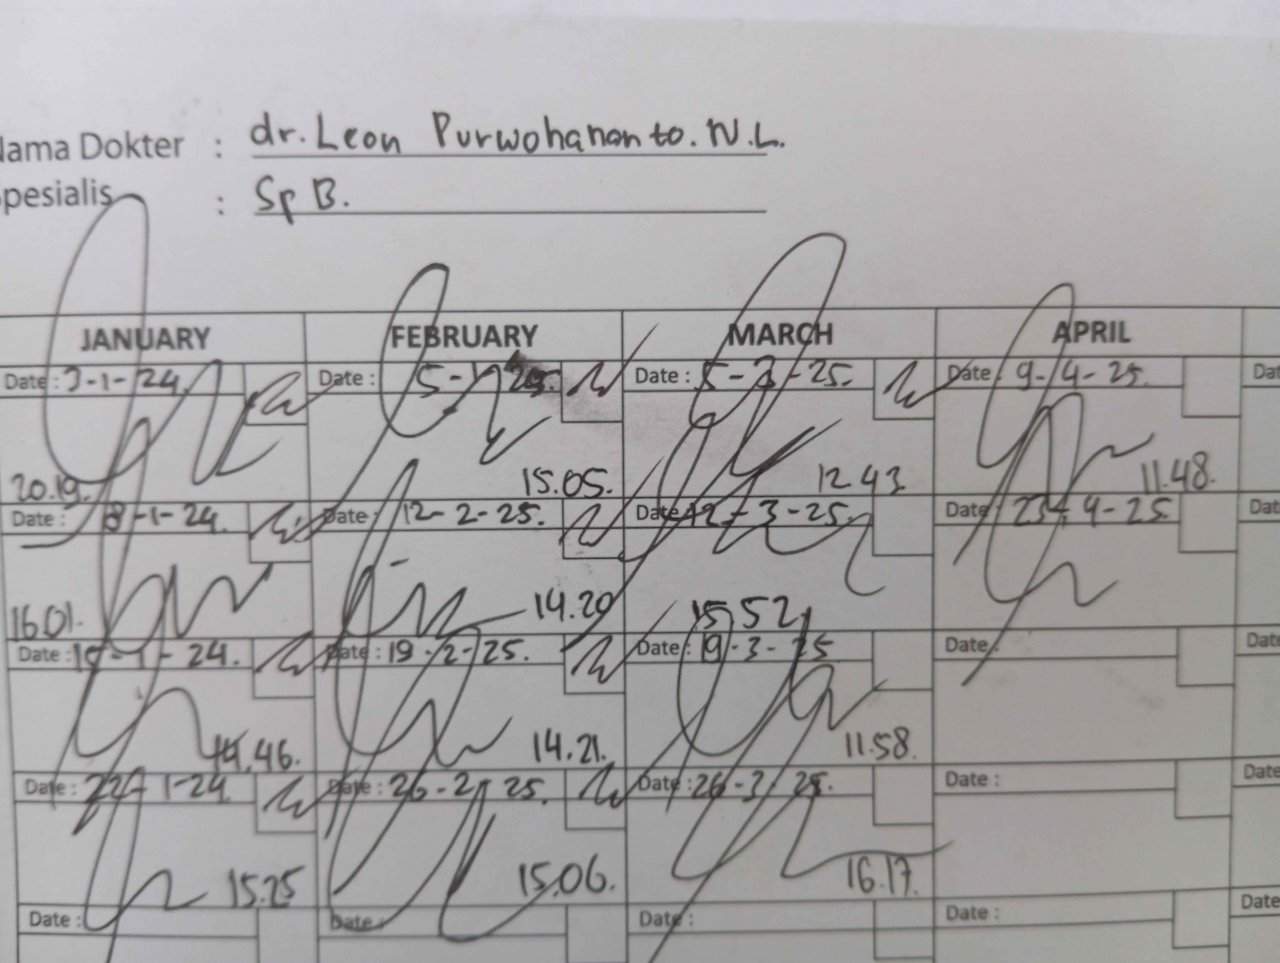 Nama Dokter : dr. Leon Purwohananto. N.L.
Spesialis : Sp B.
JANUARY FEBRUARY MARCH APRIL
Date : 3-1-24. Date : 5- Date : 5-3-25. Date : 9-4-25.
20.19. 15.05. 12.43 11.48.
Date : 8-1-24. Date : 12-2-25. Date : 12-3-25. Date : 23-4-25
16.01. 14.20 15.52
Date : -1-24. Date : 19-2-25. Date : 19-3-25 Date :
14.46. 14.21. 11.58.
Date : 22-1-24. Date : 26-2-25. Date : 26-3-25. Date : Date
15.25 15.06. 16.17.
Date : Date : Date : Date : Date